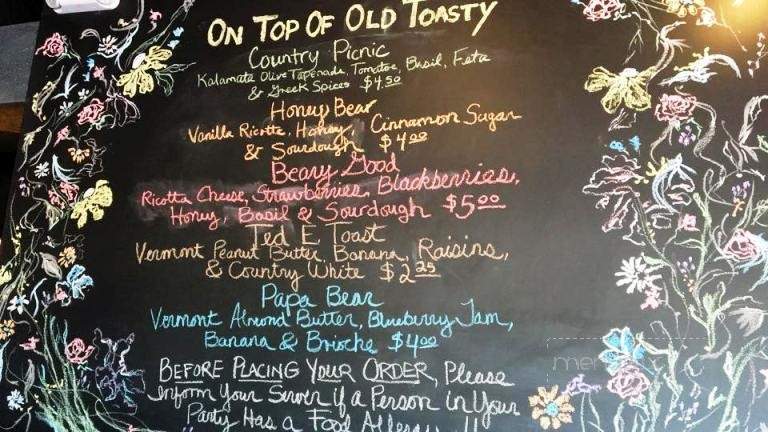 On Top Of Old Toasty
Country Picnic
Kalamata Olive Tapenade, Tomatoe, Basil, Feta
& Greek Spices $4.50
Honey Bear
Vanilla Ricotta, Honey, Cinnamon Sugar
& Sourdough $4.00
Beary Good
Ricotta Cheese, Strawberries, Blackberries,
Honey, Basil & Sourdough $5.00
Ted E Toast
Vermont Peanut Butter, Banana, Raisins,
& Country White $2.25
Papa Bear
Vermont Almond Butter, Blueberry Jam,
Banana & Brioche $4.00
Before Placing Your Order, Please
inform Your Server if a Person in Your
Party Has a Food Allergy !!